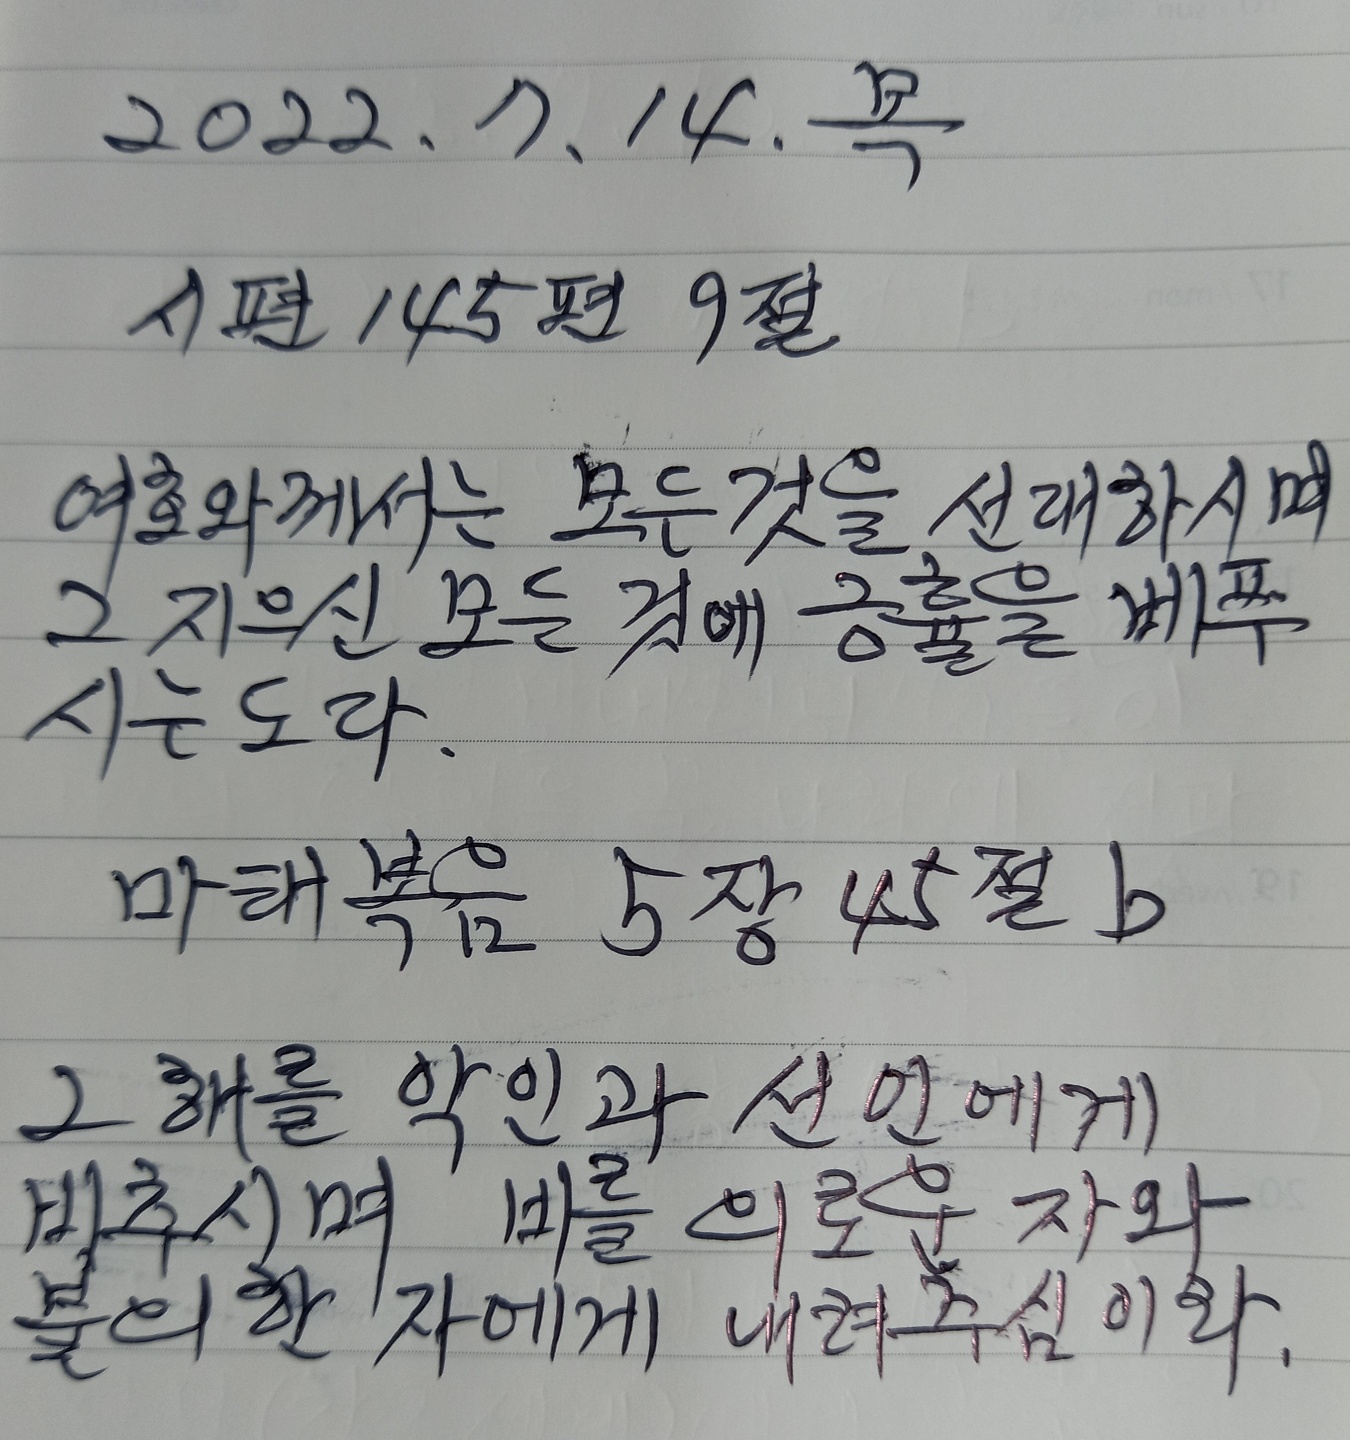 2022. 7. 14. 목
시편 145편 9절
여호와께서는 모든것을 선대하시며
그 지으신 모든 것에 긍휼을 베푸
시는도다.
마태복음 5장 45절 b
그 해를 악인과 선인에게
비추시며 비를 의로운 자와
불의한 자에게 내려주심이라.